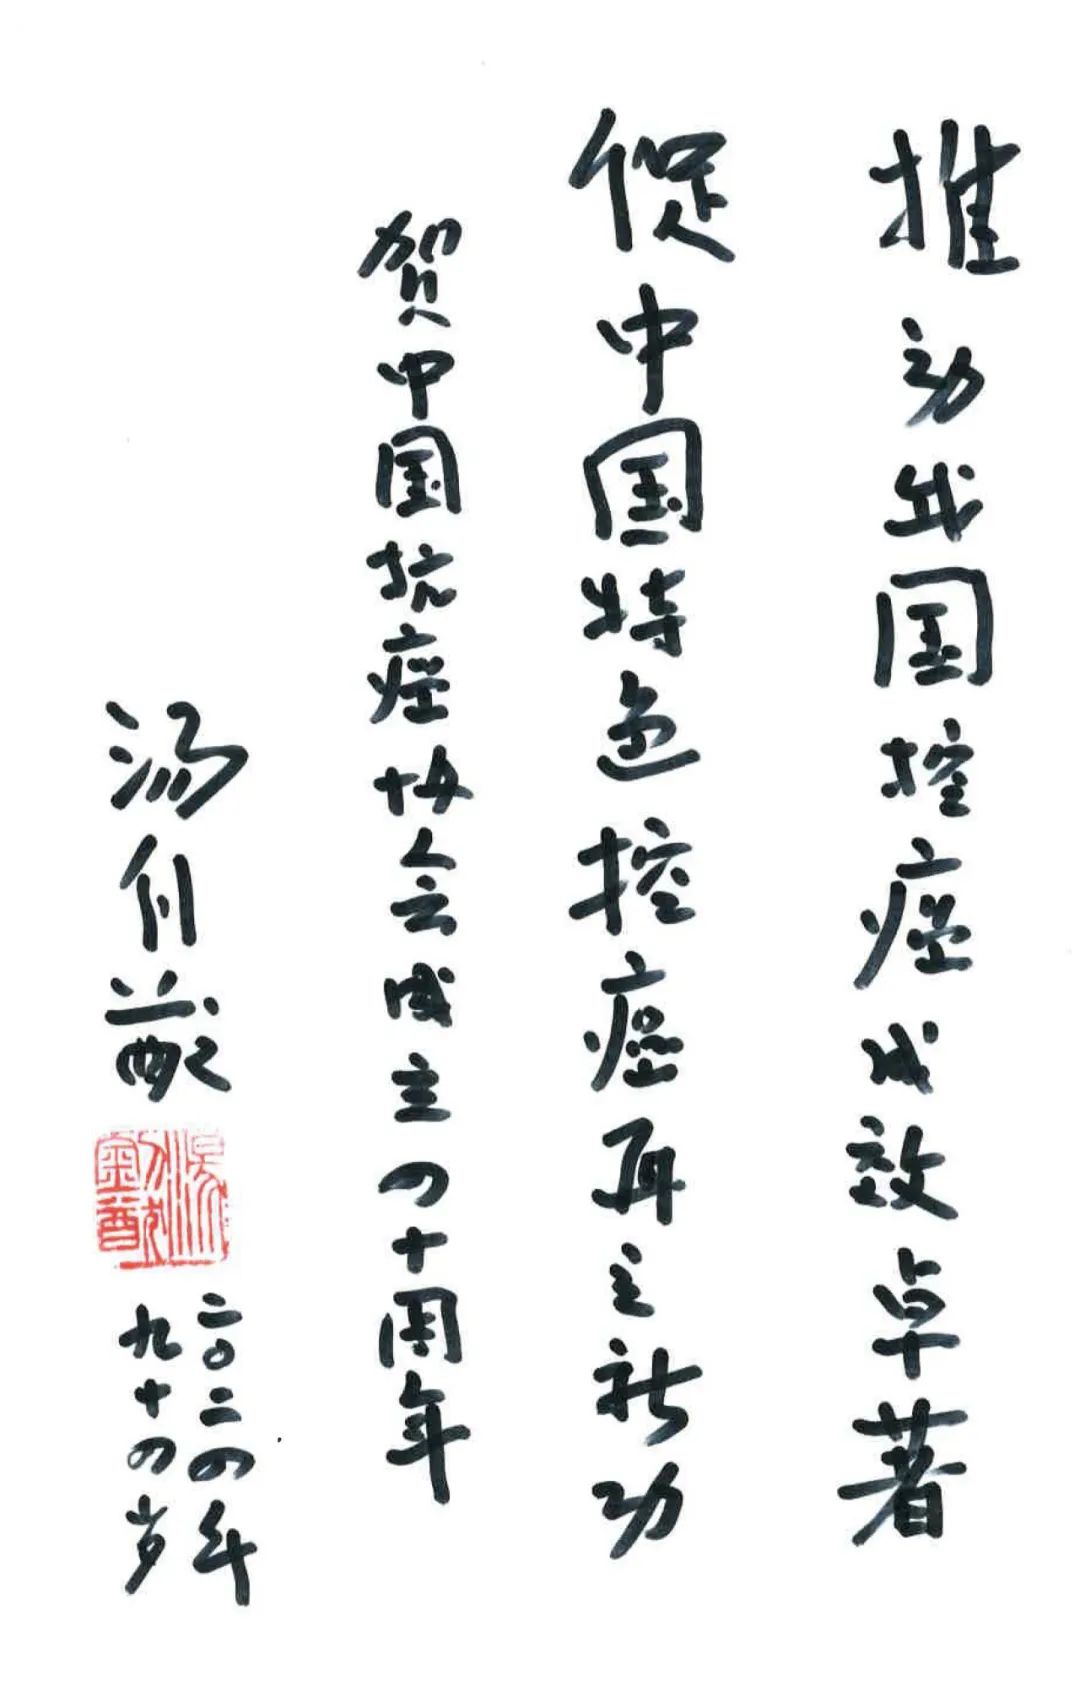 推动我国控癌成效卓著
促中国特色控癌再立新功
贺中国抗癌协会成立四十周年
汤钊猷
二〇二四年
九十四岁